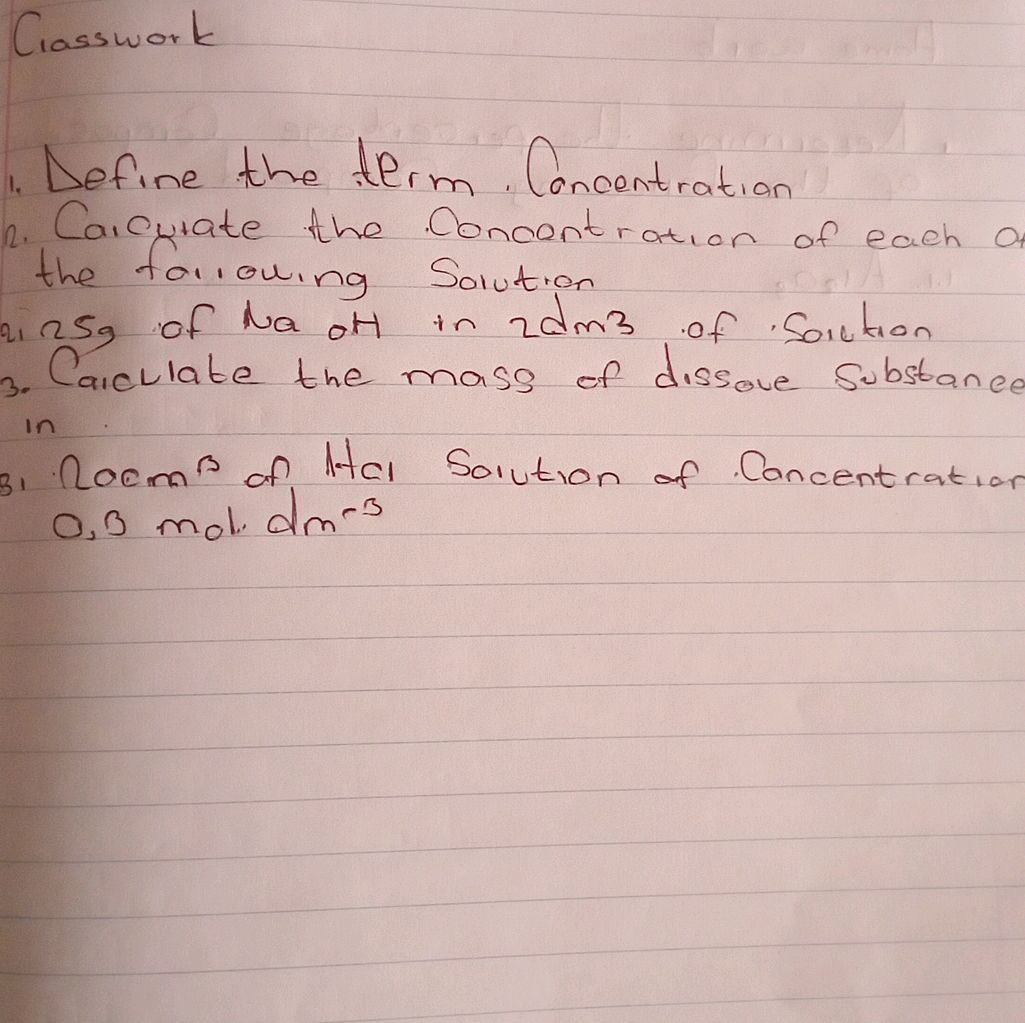 Classwork
1. Define the term Concentration
2. Calculate the Concentration of each of
the following Solution
2.1 25g of NaOH in 2dm3 of Solution
3. Calculate the mass of dissove Substance
in
3.1 200cm³ of HCl Solution of Concentration
0,3 mol. dm⁻³